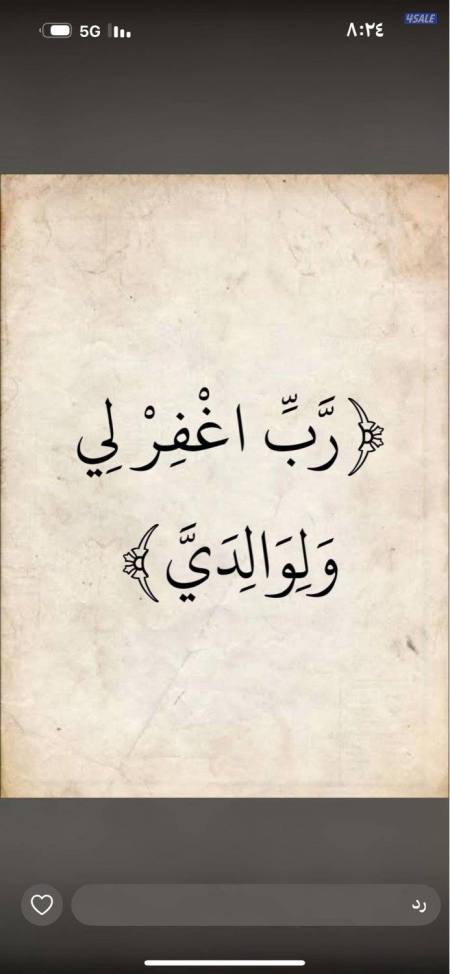 4SALE
٨:٢٤
5G
﴿رَّبِّ اغْفِرْ لِي
وَلِوَالِدَيَّ﴾
رد